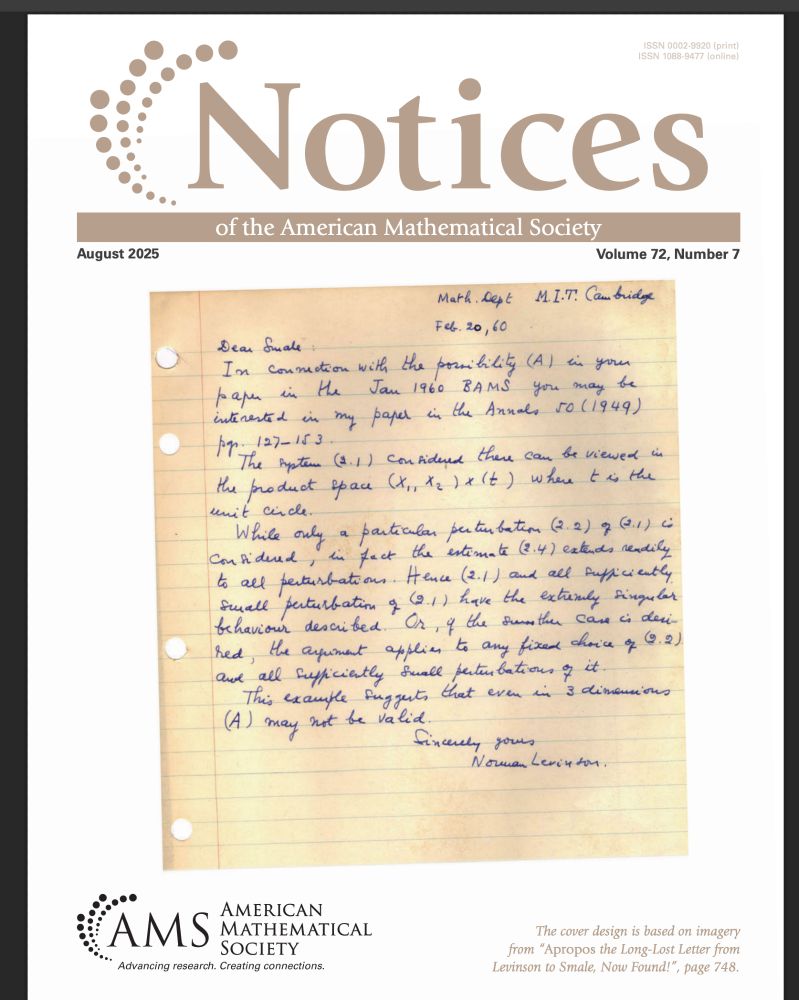 ISSN 0002-9920 (print)
ISSN 1088-9477 (online)
Notices
of the American Mathematical Society
August 2025
Volume 72, Number 7
Math. Dept M.I.T. Cambridge
Feb. 20, 60
Dear Smale :
In connection with the possibility (A) in your
paper in the Jan 1960 BAMS you may be
interested in my paper in the Annals 50 (1949)
pgs. 127–153.
The system (2.1) considered there can be viewed in
the product space (x₁, x₂) x (t) where t is the
unit circle.
While only a particular perturbation (2.2) of (2.1) is
considered, in fact the estimate (2.4) extends readily
to all perturbations. Hence (2.1) and all sufficiently
small perturbation of (2.1) have the extremely singular
behaviour described. Or, if the smoother case is desi-
red, the argument applies to any fixed choice of (2.2)
and all sufficiently small perturbations of it.
This example suggests that even in 3 dimensions
(A) may not be valid.
Sincerely yours
Norman Levinson.
AMS
AMERICAN
MATHEMATICAL
SOCIETY
Advancing research. Creating connections.
The cover design is based on imagery
from “Apropos the Long-Lost Letter from
Levinson to Smale, Now Found!”, page 748.